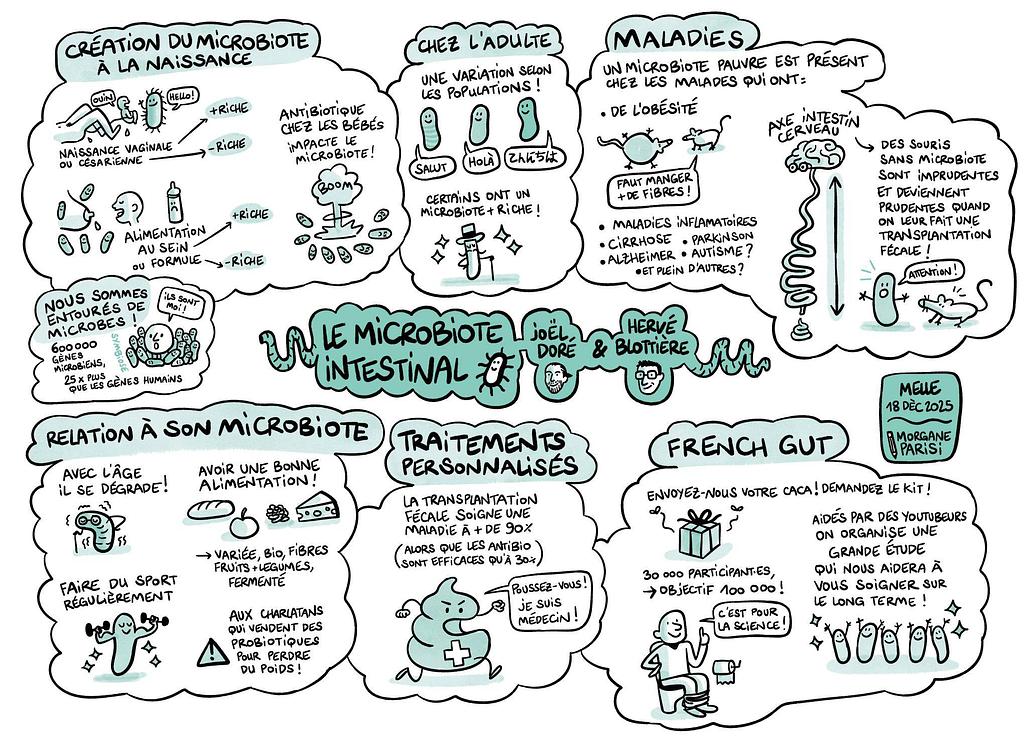 CRÉATION DU MICROBIOTE
À LA NAISSANCE
OUIN
HELLO!
NAISSANCE VAGINALE
OU CÉSARIENNE
+RICHE
-RICHE
ALIMENTATION
AU SEIN
OU FORMULE
+RICHE
-RICHE
ANTIBIOTIQUE
CHEZ LES BÉBÉS
IMPACTE LE
MICROBIOTE!
BOOM
NOUS SOMMES
ENTOURÉS DE
MICROBES!
600 000
GÈNES
MICROBIENS,
25 X PLUS
QUE LES GÈNES HUMAINS
SYMBIOSE
ILS SONT
MOI!
CHEZ L'ADULTE
UNE VARIATION SELON
LES POPULATIONS!
SALUT
HOLÀ
CERTAINS ONT UN
MICROBIOTE + RICHE!
MALADIES
UN MICROBIOTE PAUVRE EST PRÉSENT
CHEZ LES MALADES QUI ONT:
• DE L'OBÉSITÉ
FAUT MANGER
+ DE FIBRES!
• MALADIES INFLAMATOIRES
• CIRRHOSE • PARKINSON
• ALZHEIMER • AUTISME?
• ET PLEIN D'AUTRES?
AXE INTESTIN
CERVEAU
DES SOURIS
SANS MICROBIOTE
SONT IMPRUDENTES
ET DEVIENNENT
PRUDENTES QUAND
ON LEUR FAIT UNE
TRANSPLANTATION
FÉCALE!
ATTENTION!
LE MICROBIOTE
INTESTINAL
JOËL
DORÉ
&
HERVÉ
BLOTTIÈRE
MELLE
18 DÉC 2025
MORGANE
PARISI
RELATION À SON MICROBIOTE
AVEC L'ÂGE
IL SE DÉGRADE!
FAIRE DU SPORT
RÉGULIÈREMENT
AVOIR UNE BONNE
ALIMENTATION!
→ VARIÉE, BIO, FIBRES
FRUITS + LEGUMES,
FERMENTÉ
AUX CHARLATANS
QUI VENDENT DES
PROBIOTIQUES
POUR PERDRE
DU POIDS!
TRAITEMENTS
PERSONNALISÉS
LA TRANSPLANTATION
FÉCALE SOIGNE UNE
MALADIE À + DE 90%
(ALORS QUE LES ANTIBIO
SONT EFFICACES QU'À 30%)
POUSSEZ-VOUS!
JE SUIS
MÉDECIN!
FRENCH GUT
ENVOYEZ-NOUS VOTRE CACA! DEMANDEZ LE KIT!
30 000 PARTICIPANT·ES,
→ OBJECTIF 100 000!
C'EST POUR
LA SCIENCE!
AIDÉS PAR DES YOUTUBEURS
ON ORGANISE UNE
GRANDE ÉTUDE
QUI NOUS AIDERA À
VOUS SOIGNER SUR
LE LONG TERME!